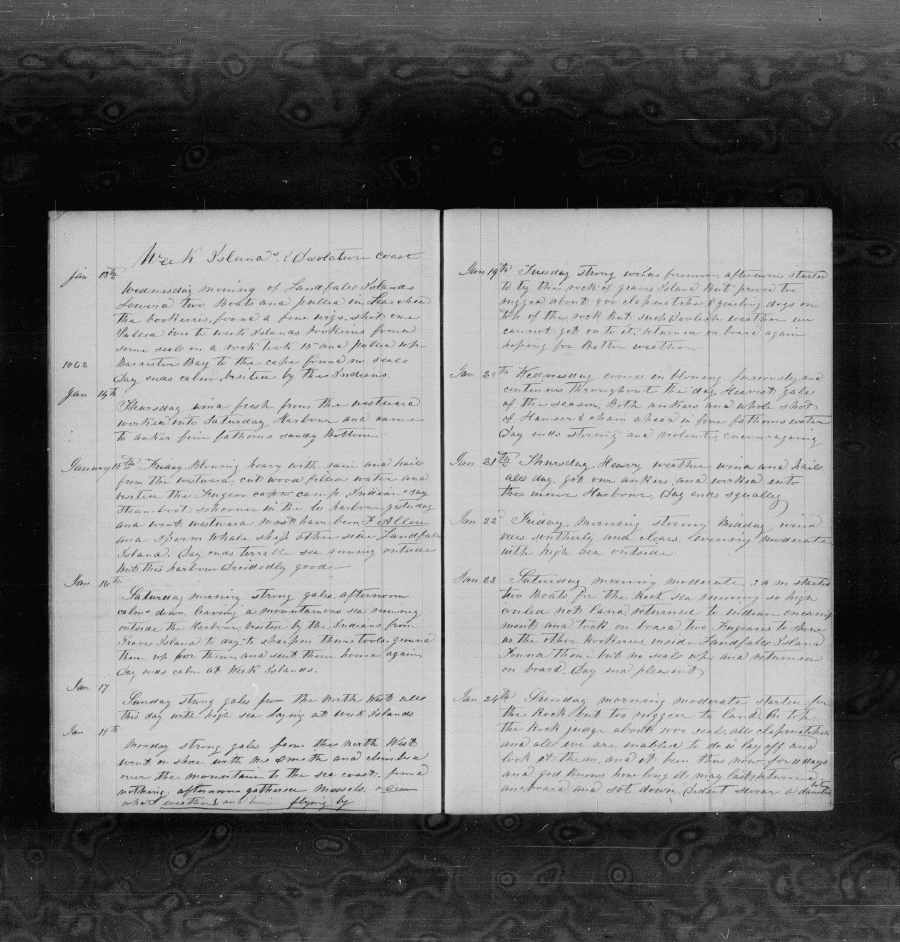 Week Islands & Desolation coast
Jan 13th
Wednesday morning of Landfall Islands
Lowerd two Boats and pulled in Lea where
the rookeries, found a few wigs, shot one
Pulled over to week Islands rookeries found
some seals on a rock took 15 and pulled up
1862 Barrister Bay to the cape found no seals
Day ends calm, visited by the Indians.
Jan 14th
Thursday wind fresh from the westward
worked into Saturday Harbour and came
to anker five fathoms sandy Bottom
January 15th Friday. Blowing heavy with rain and hails
from the westward cut wood filled water and
visited the Fugean camp, Indians say
boat schooner in the harbour yesterday
and went westward must have been F Allen
and Sperm Whale ship other side Landfall
Island. Day ends terrible sea runing outside
but this harbour decidedly good
Jan 16th
Saturday morning strong gales, afternoon
calmd down leaving a mountainous sea runing
outside the Harbour visited by the Indians from
Graves Island to day to sharpen there tools. ground
them up for them and sent them home again
Day ends calm at Week Islands.
Jan 17
Sunday strong gales from the North West all
this day with high sea laying at week Islands
Jan 18th
Monday strong gales from the North West
went on shore with Mr Smith and climbed
over the mountain to the sea coast. found
nothing. afternoon gathered mussels
what weather, and time flying by
Jan 19th Tuesday strong winds forenoon, afternoon started
to by the rock of graves Island But proved too
rugged about 800 clapmatches & yearling dogs on
top of the rock But such Devilish weather we
cannot get on to it, returned on board again
hoping for Better weather
Jan 20th Wednesday comes in blowing furiously and
continues throughout the day Heavest gale
of the season, Both ankers and whole shot
of Hawser & chain ahead in five fathoms water
Day ends strong and violent, encouraging
Jan 21th Thursday Heavy weather wind and hails
all day, got our ankers, and worked into
the inner Harbour, Day ends squally
Jan 22d Friday Morning stormy Midday wind
was southerly and clears, evening moderate
with high sea outside
Jan 23 Saturday morning moderate, 3 a m started
two Boats for the Rock, sea runing so high
could not land returned to indian encamp
ment and took on board two Fugeans to show
us the other Rookeries inside Landfall Island
Found them but no seals up and returned
on board, Day end pleasant
Jan 24th Sunday morning moderate started for
the Rock but too rugged to land
the Rock judge about 1000 seals, all clapmatches
and all we are enabled to do is lay off and
look at them, and it been thus now for 11 days
and god knows how long it may last, returned
on board and sot down. Dident swear a